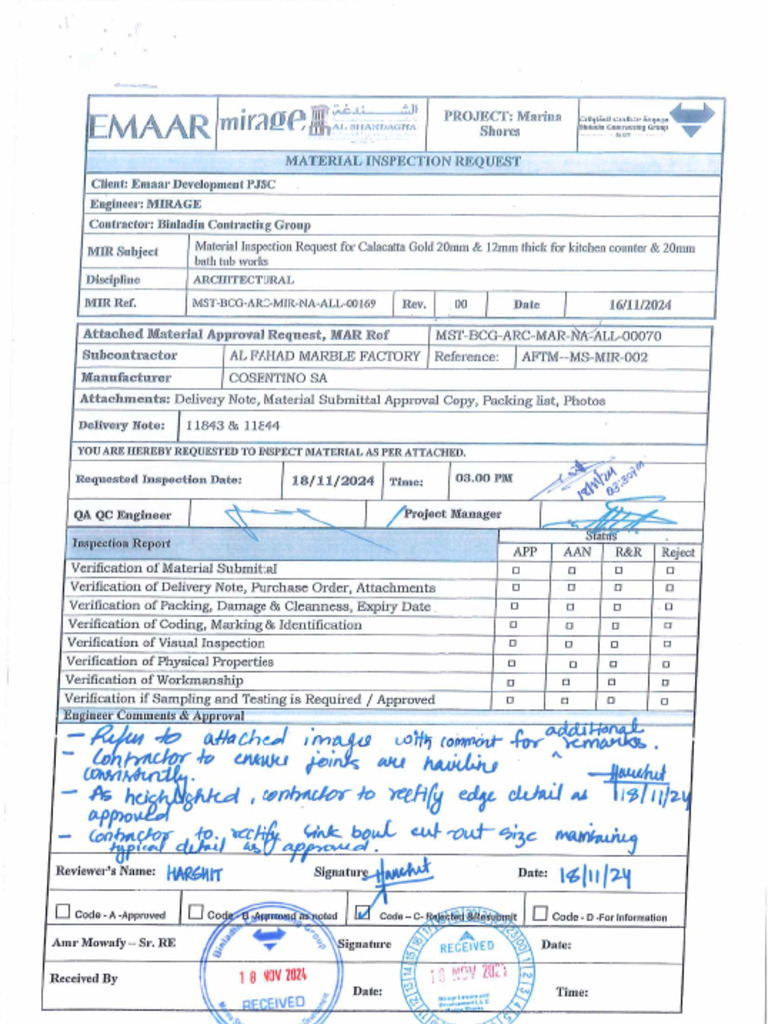 EMAAR
mirage
الشندغة
AL SHANDAGHA
PROJECT: Marina
Shores
Binladin Contracting Group
MATERIAL INSPECTION REQUEST
Client: Emaar Development PJSC
Engineer: MIRAGE
Contractor: Binladin Contracting Group
MIR Subject
Material Inspection Request for Calacatta Gold 20mm & 12mm thick for kitchen counter & 20mm
bath tub works
Discipline ARCHITECTURAL
MIR Ref. MST-BCG-ARC-MIR-NA-ALL-00169 Rev. 00 Date 16/11/2024
Attached Material Approval Request, MAR Ref MST-BCG-ARC-MAR-NA-ALL-00070
Subcontractor AL FAHAD MARBLE FACTORY Reference: AFTM--MS-MIR-002
Manufacturer COSENTINO SA
Attachments: Delivery Note, Material Submittal Approval Copy, Packing list, Photos
Delivery Note: 11843 & 11844
YOU ARE HEREBY REQUESTED TO INSPECT MATERIAL AS PER ATTACHED.
Requested Inspection Date: 18/11/2024 Time: 03.00 PM 18/11/24 03:30PM
QA QC Engineer Project Manager
Inspection Report Status
APP AAN R&R Reject
Verification of Material Submittal
Verification of Delivery Note, Purchase Order, Attachments
Verification of Packing, Damage & Cleanness, Expiry Date
Verification of Coding, Marking & Identification
Verification of Visual Inspection
Verification of Physical Properties
Verification of Workmanship
Verification if Sampling and Testing is Required / Approved
Engineer Comments & Approval
- Refer to attached image with comment for additional remarks.
- Contractor to ensure joints are hairline
consistently.
Harshit
- As heighlighted, contractor to rectify edge detail as 18/11/24
approved
- Contractor to rectify sink bowl cut-out size maintaining
typical detail as approved.
Reviewer's Name: HARSHIT Signature Harshit Date: 18/11/24
Code - A -Approved Code - B -Approved as noted Code – C- Rejected &Resubmit Code - D -For Information
Amr Mowafy – Sr. RE Signature Date:
Received By Date: Time:
Binladin Contracting Group
18 NOV 2024
RECEIVED
RECEIVED
18 NOV 2024